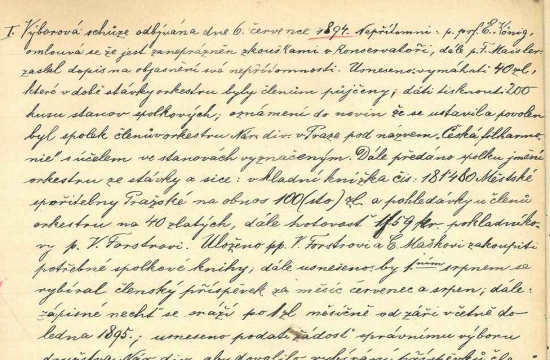 I. Výborová schůze odbývána dne 6. července 1894. Nepřítomni: p. prf. E. König,
omlouvá se že jest zaneprázněn zkouškami v konservatoři, dále p. F. Maisler
zaslal dopis na objasnění své nepřítomnosti. Usneseno: vymáhati 40 zl.,
které v době stávky orkestru byly členům půjčeny; dáti tisknouti 200
kusů stanov spolkových; oznámení do novin že se ustavil a povolen
byl spolek členův orkestru Nár. div. v Praze pod názvem „Česká filharmo-
nie" s účelem ve stanovách vyznačeným. Dále předáno spolku jmění
orkestru ze stávky a sice: vkladní knížka čís. 181480 Městské
spořitelny Pražské na obnos 100 (sto) zl. a pohledávky u členů
orkestru na 40 zlatých, dále hotovost 59 kr. pokladníko-
vy p. V. Forstrovi. Uloženo pp. V. Forstrovi a E. Maškovi zakoupiti
potřebné spolkové knihy, dále usneseno: by 1. srpnem se
vybíral členský příspěvek za měsíc červenec a srpen; dále:
zápisné nechť se sráží po 1 zl. měsíčně od září včetně do
ledna 1895.; usneseno podati žádost správnímu výboru
družstva Nár. div. aby dovolilo vybírání